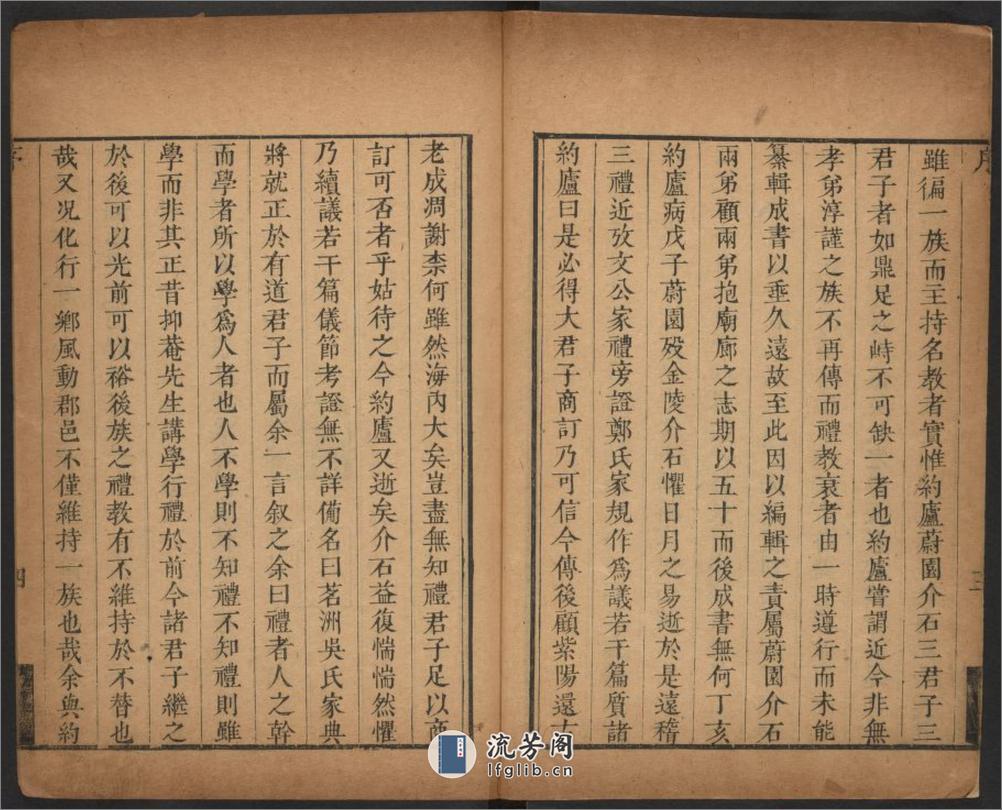 序
雖徧一族而主持名教者實惟約廬蔚園介石三君子三
君子者如鼎足之峙不可缺一者也約廬嘗謂近今非無
孝弟淳謹之族不再傳而禮教衰者由一時遵行而未能
纂輯成書以垂久遠故至此因以編輯之責屬蔚園介石
兩弟顧兩弟抱廟廊之志期以五十而後成書無何丁亥
約廬病戊子蔚園殁金陵介石懼日月之易逝於是遠稽
三禮近攷文公家禮旁證鄭氏家規作爲議若干篇質諸
約廬曰是必得大君子商訂乃可信今傳後顧紫陽還古
三
老成凋謝柰何雖然海内大矣豈盡無知禮君子足以商
訂可否者乎姑待之今約廬又逝矣介石益復惴惴然懼
乃續議若干篇儀節考證無不詳僃名曰茗洲吳氏家典
將就正於有道君子而屬余一言叙之余曰禮者人之幹
而學者所以學爲人者也人不學則不知禮不知禮則雖
學而非其正昔抑菴先生講學行禮於前今諸君子繼之
於後可以光前可以裕後族之禮教有不維持於不替也
哉又况化行一鄉風動郡邑不僅維持一族也哉余與約
序
四
流芳阁
lfglib.cn